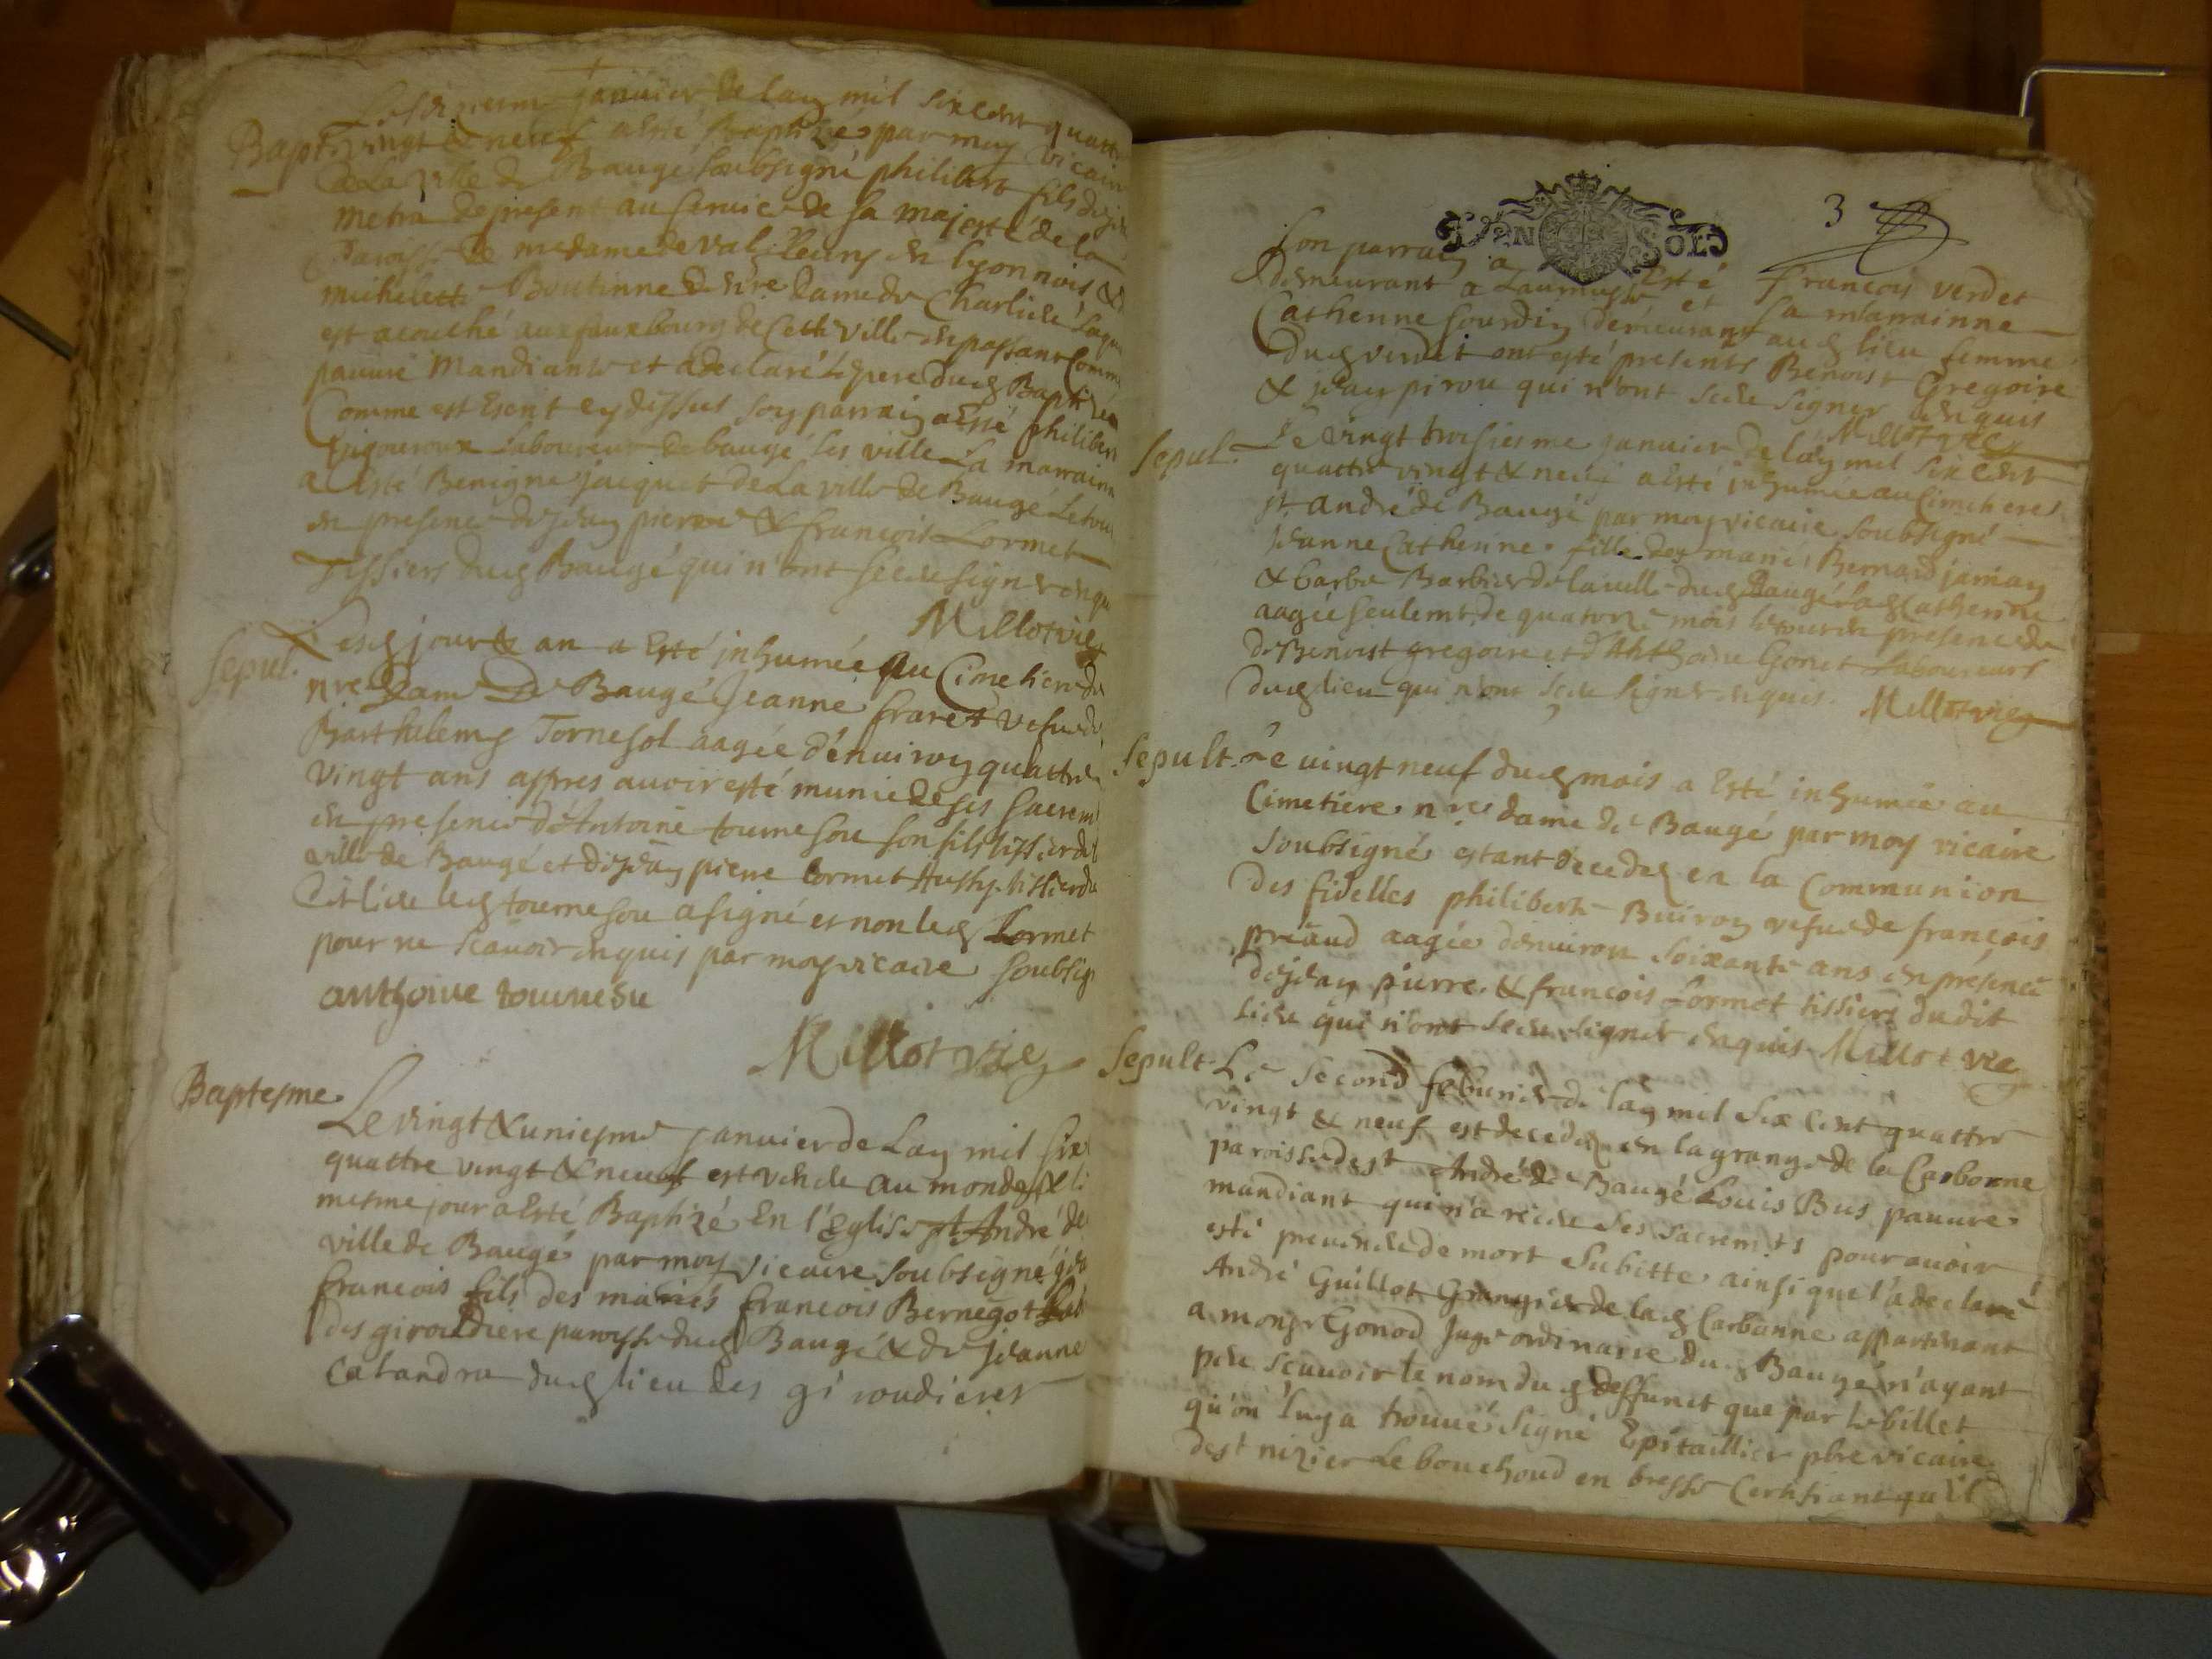 janvier de lan mil six cent quattre
Bapt. vingt & neuf a esté Baptizé par moy vicaire
de la ville de Baugé soubsigné philibert fils de
metra de present au service de sa majesté de la
paroisse de de val fleury en lyonnois &
michelette Boutinne de nre dame de Charlieu
est acouché aux fauxbourg de cette ville en passant comme
pauvre mandiante et a declaré le pere dud Baptizé
comme est escrit cy dessus son parrain a esté philibert
laboureur de baugé les ville La marraine
a esté Benigne jacquet de La ville de Baugé Le tout
en presence de jean pierre & francois Lormet
Tissiers dud Baugé qui n'ont sceu signer enquis
Millot vic
sepul. Lesd jour & an a esté inhumée au Cimetiere de
nre Dame De Baugé Jeanne fraret vefve de
Barthelemy Tornesol aagée d'environ quattre
vingt ans appres avoir esté munie de ses sacrem
en presence d'Antoine tournesou son fils tissier de
ville de Baugé et de jean pierre Lormet aussy tissier du
dit lieu led tournesou a signé et non led Lormet
pour ne scavoir enquis par moy vicaire soubsig
anthoine tournesu
Millot vic
Baptesme
Le vingt & uniesme janvier de Lan mil six
quattre vingt & neuf est venu au monde & le
mesme jour a esté Baptizé En l'Eglise st André de
ville de Baugé par moy vicaire soubsigné
francois fils des mariés francois Bernegot
des giroudiere paroisse dud Baugé & de jeanne
Catandra dud lieu des giroudieres
3
son parrain a esté francois verdet
demeurant a Laumusse et sa marrainne
Catherine Gourdin demeurant aud lieu femme
dud verdet ont esté presents Benoist Gregoire
& jean pirou qui n'ont sceu signer enquis
Millot vic
sepul. Le vingt troisiesme janvier de lan mil six cent
quattre vingt & neuf a esté inhumée au Cimetiere
st. andré de Baugé par moy vicaire soubsigné
jeanne Catherine fille des mariés Bernard
& barbe Barbier de la ville dud Baugé lad Catherine
aagée seulemt de quatorze mois le tout en presence de
de Benoist gregoire et d'Anthoine Gonet Laboureurs
dud lieu qui n'ont sceu signer enquis. Millot vic
Sepult. Le vingt neuf dud mois a esté inhumée au
Cimetiere nre dame de Baugé par moy vicaire
soubsigné estant decedez en la Communion
des fidelles philiberte Buiron vefve de françois
preaud aagée denviron soixante ans en présence
de jean pierre & francois Lormet tissiers dudit
lieu qui n'ont sceu signer enquis Millot vic
Sepult. Le second febvrier de lan mil six cent quattre
vingt & neuf est decedez en la grange de la Carbonne
paroisse de st André de Baugé Louis Bus pauvre
mandiant qui n'a receu ses sacremts pour avoir
esté prevenu de mort subitte ainsi que l'a declaré
André Guillot Grangier de lad Carbonne appartenant
a monsr Gonod Juge ordinaire dud Baugé n'ayant
peu scavoir le nom dud deffunct que par le billet
qu'on luy a trouvé signé Epitaillier pbre vicaire
de st nizier Le bouchoud en bresse Certifiant qu'il